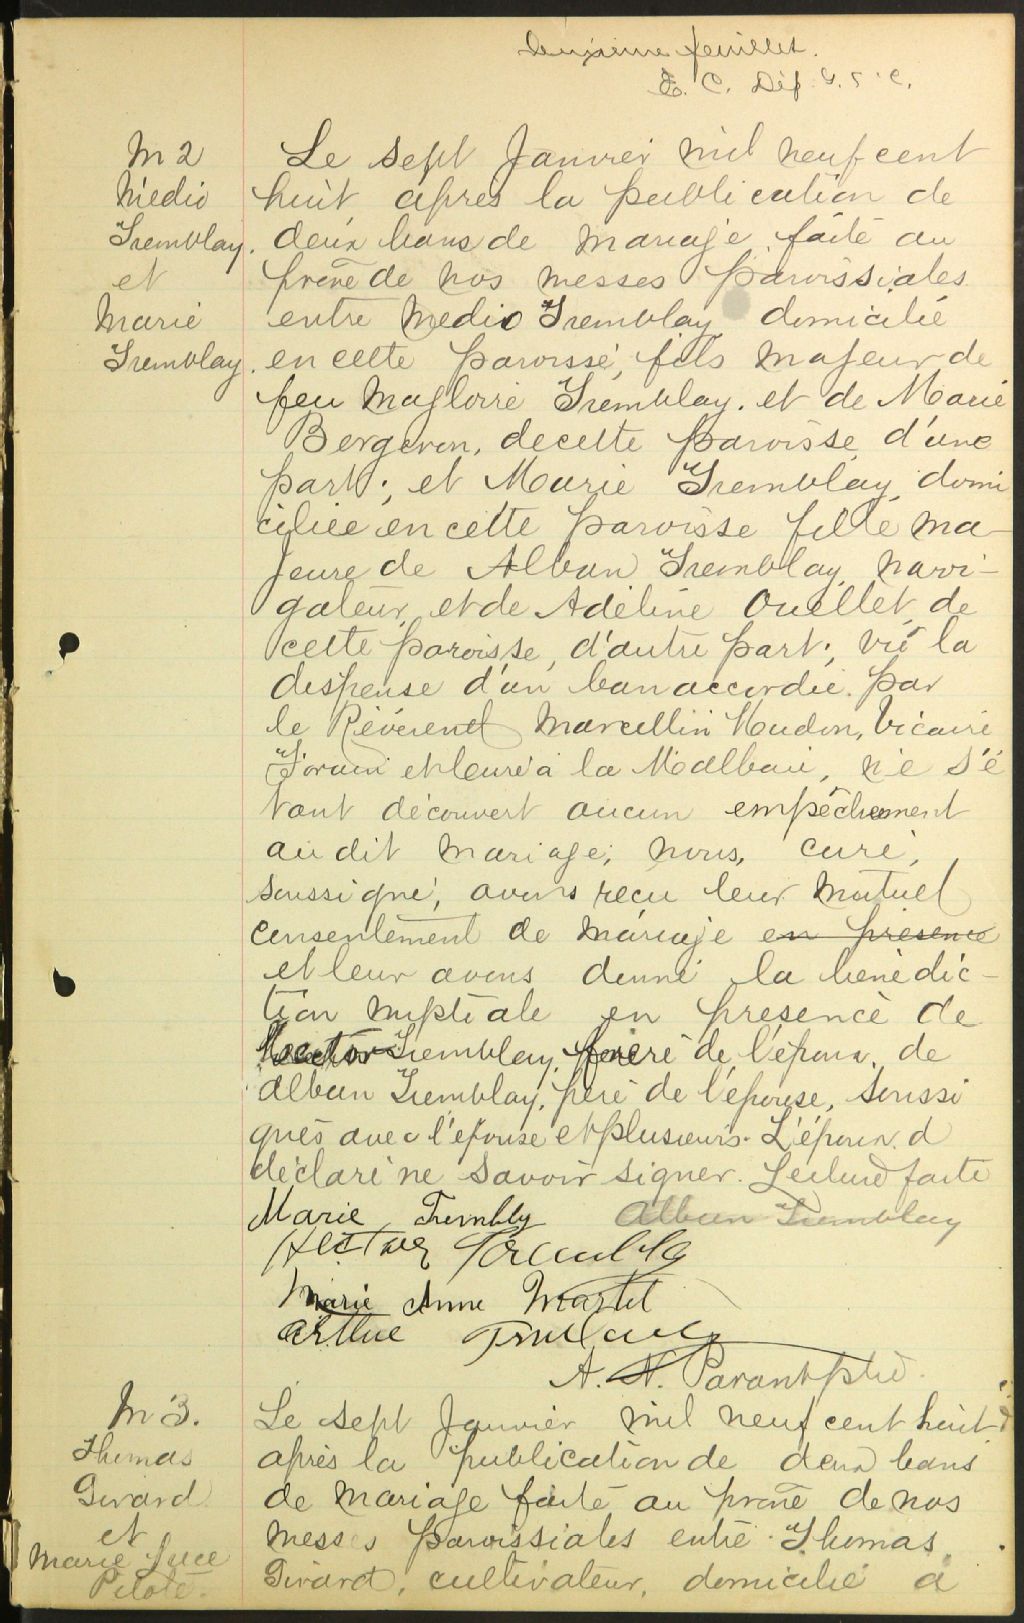 Deuxième feuillet.
E. C. Dép. G. S. C.
M 2
Médio
Tremblay.
et
Marie
Tremblay.
Le sept Janvier mil neuf cent
huit, après la publication de
deux bans de mariage, faite au
prône de nos messes paroissiales
entre Médio Tremblay domicilié
en cette paroisse, fils majeur de
feu Magloire Tremblay. et de Marie
Bergeron, de cette paroisse, d'une
part; et Marie Tremblay, domi
ciliée en cette paroisse fille ma-
jeure de Alban Tremblay, navi-
gateur, et de Adéline Ouellet, de
cette paroisse, d'autre part; vu la
dispense d'un ban accordée par
le Révérend Marcellin Hudon, Vicaire
Forain et curé à la Malbaie, ne s'é
tant découvert aucun empêchement
au dit mariage; nous, curé,
soussigné, avons reçu leur mutuel
consentement de mariage en présence
et leur avons donné la bénédic-
tion nuptiale en présence de
Hector Tremblay, frère de l'époux, de
Alban Tremblay, père de l'épouse, soussi
gnés avec l'épouse et plusieurs. L'époux a
déclaré ne savoir signer. Lecture faite
Marie Trembly Alban Tremblay
Hector Tremblay
Marie Anne Martel
Arthur Tremblay
A. N. Parant ptre.
M 3.
Thomas
Girard
et
Marie Luce
Pilote.
Le sept Janvier mil neuf cent huit,
après la publication de deux bans
de mariage faite au prône de nos
messes paroissiales entre Thomas
Girard, cultivateur, domicilié à